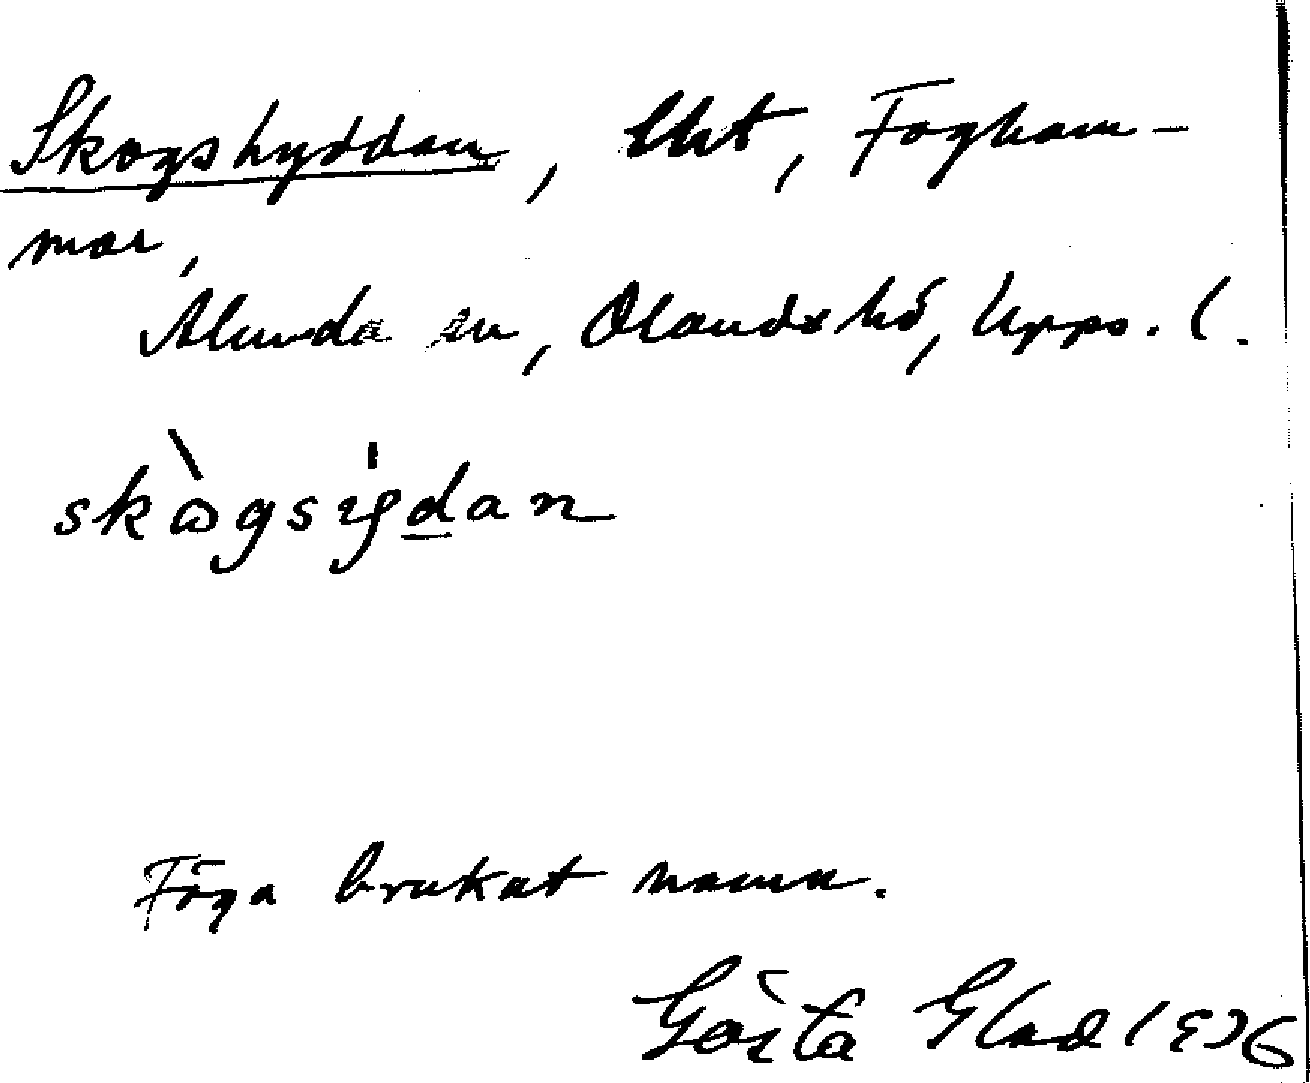 Skogshyddan, lht, Fogham-
mar,
Alunda sn, Olands hd, Upps. l.
skògsydan
Föga brukat namn.
Gösta Glad 1936